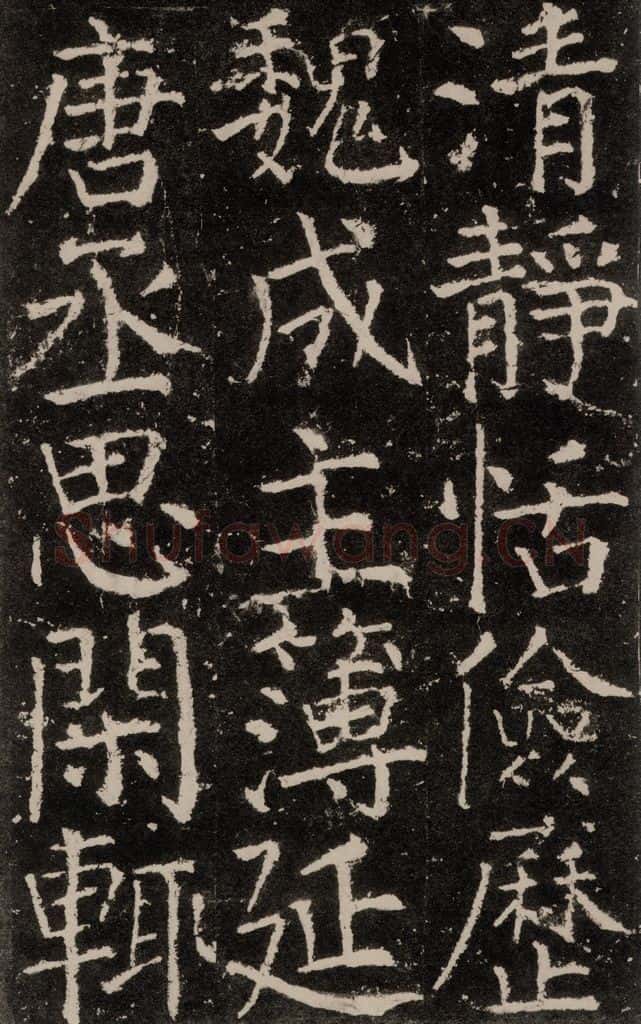 清靜恬儉歷
魏成主簿延
唐丞思閑輒
Shufawang.CN